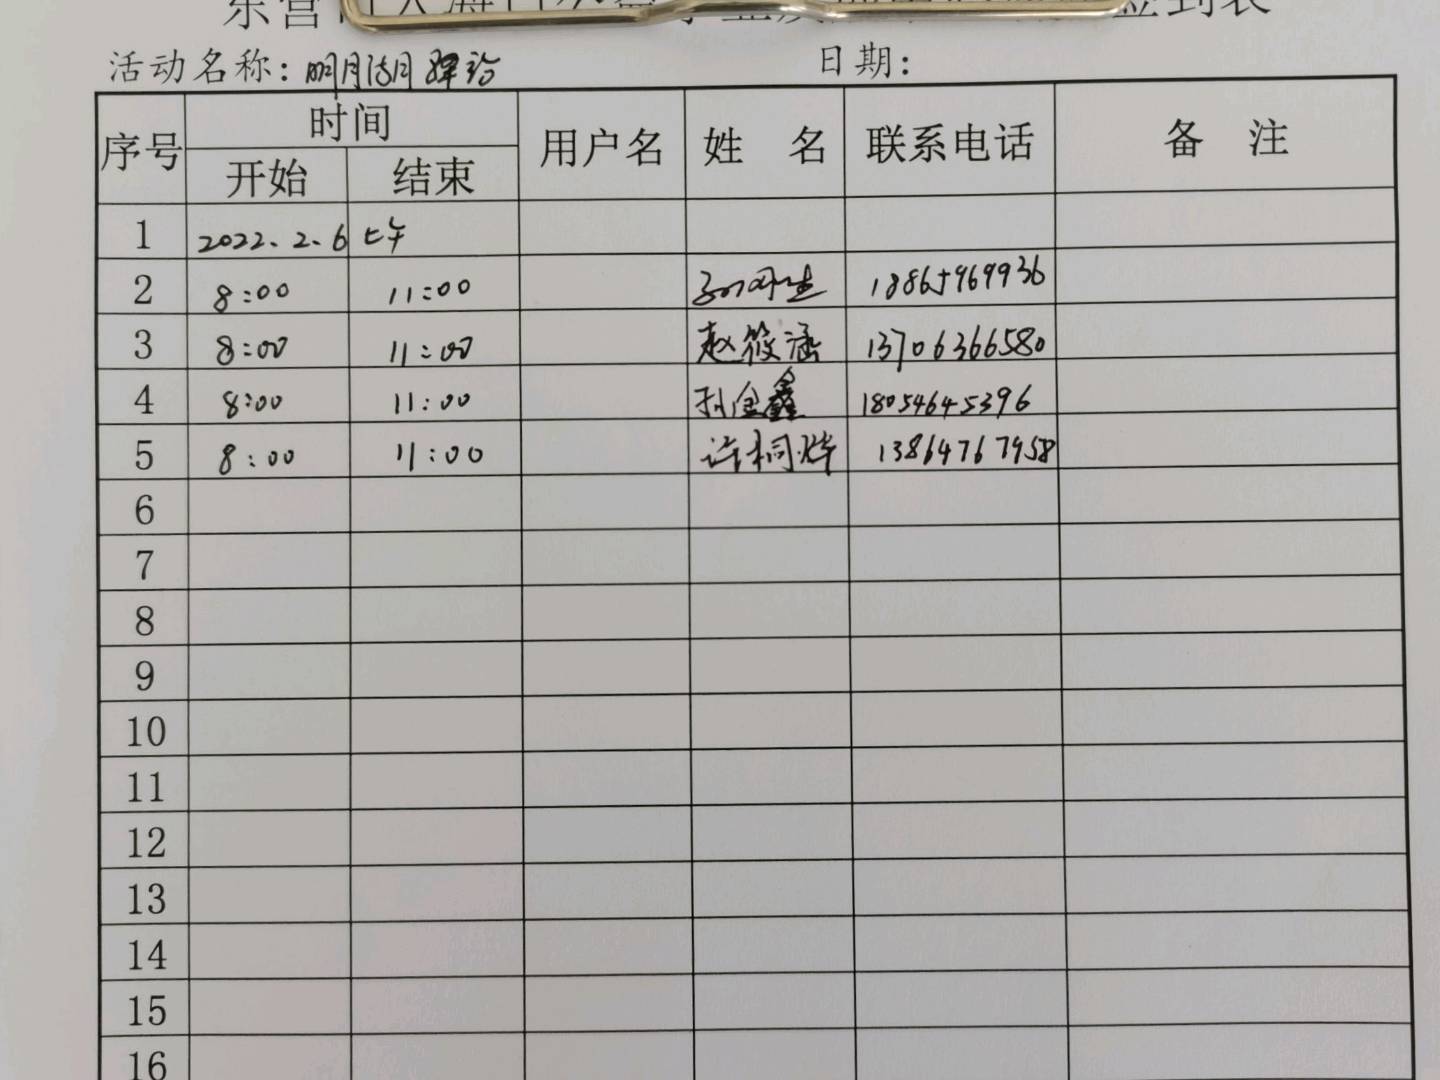 东营
签到表
活动名称: 明月湾月驿站 日期:
序号 时间 用户名 姓 名 联系电话 备 注
开始 结束
1 2022.2.6 上午
2 8:00 11:00 18865969936
3 8:00 11:00 赵筱涵 13706366580
4 8:00 11:00 孙金鑫 18054645396
5 8:00 11:00 许桐烨 13864767958
6
7
8
9
10
11
12
13
14
15
16